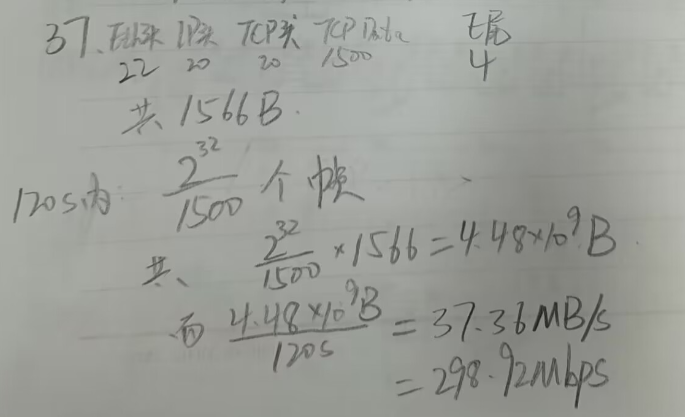 37. Eth头 IP头 TCP头 TCP Data E尾
22 20 20 1500 4
共 1566B.
120s内: 2^32/1500 个帧
共、 2^32/1500 × 1566 = 4.48×10^9 B
而 4.48×10^9B/120s = 37.36MB/s
= 298.92Mbps